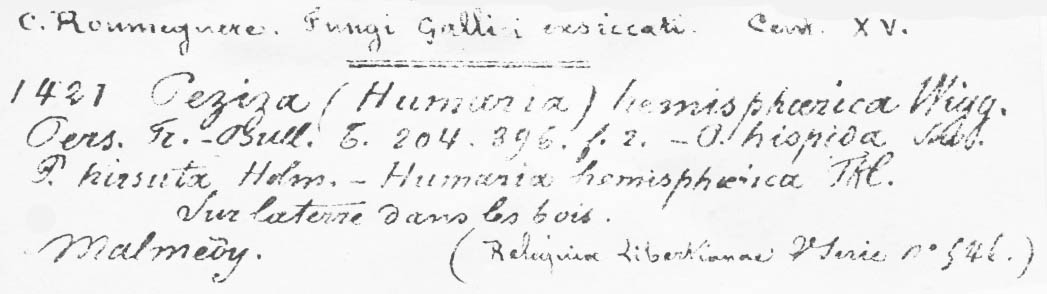 C. Roumeguere. Fungi Gallici exsiccati. Cent. XV.
1421 Peziza (Humaria) hemisphœrica Wigg.
Pers. Fr. - Bull. t. 204. 396. f. 2. - P. hispida
P. hirsuta Holm. - Humaria hemisphœrica Fkl.
Sur la terre dans les bois.
Malmédy. (Reliquiæ Libertianae Serie n° 546.)